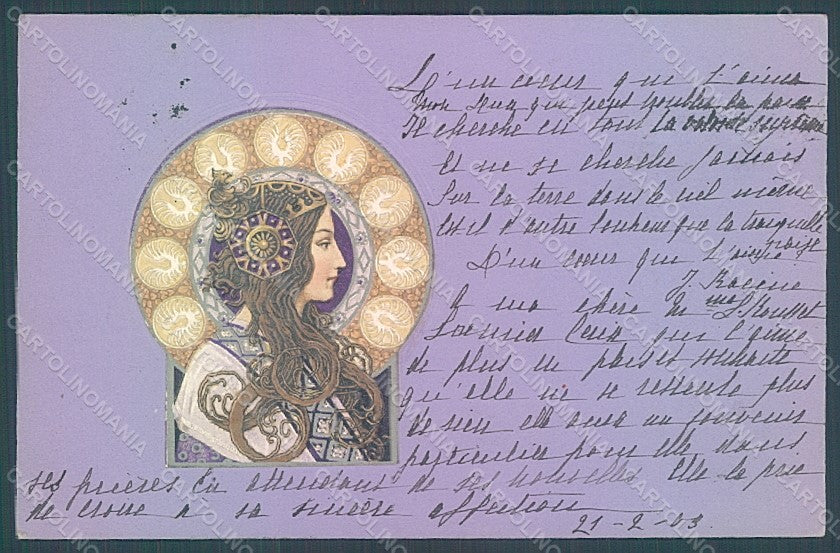 D'un coeur qui t'aime
Mon Dieu qui peut troubler la paix
Il cherche en tout ta volonté suprême
Et ne se cherche jamais
Sur la terre dans le ciel même
Est il d'autre bonheur que la tranquille
paix
D'un coeur qui t'aime
J. Racine
A ma chère Mme S. Rousset
ceux qui l'aime
de plus en plus et souhaite
qu'elle ne se ressente plus
de rien elle aura un souvenir
particulier pour elle dans
ses prières en attendant de ses nouvelles. Elle la prie
de croire à sa sincère affection
21-2-03.
CARTOLINOMANIA